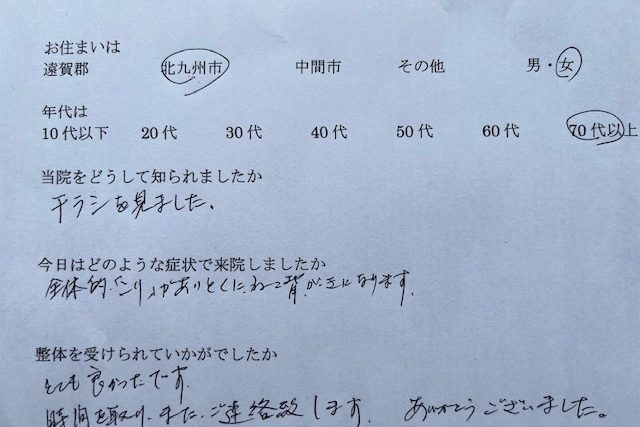 お住まいは
遠賀郡 北九州市 中間市 その他 男・女
年代は
10代以下 20代 30代 40代 50代 60代 70代以上
当院をどうして知られましたか
チラシを見ました。
今日はどのような症状で来院しましたか
全体的に「こり」がありとくに、ねこ背がきになります。
整体を受けられていかがでしたか
とても良かったです。
時間を取り、また、ご連絡致します。 ありがとうございました。